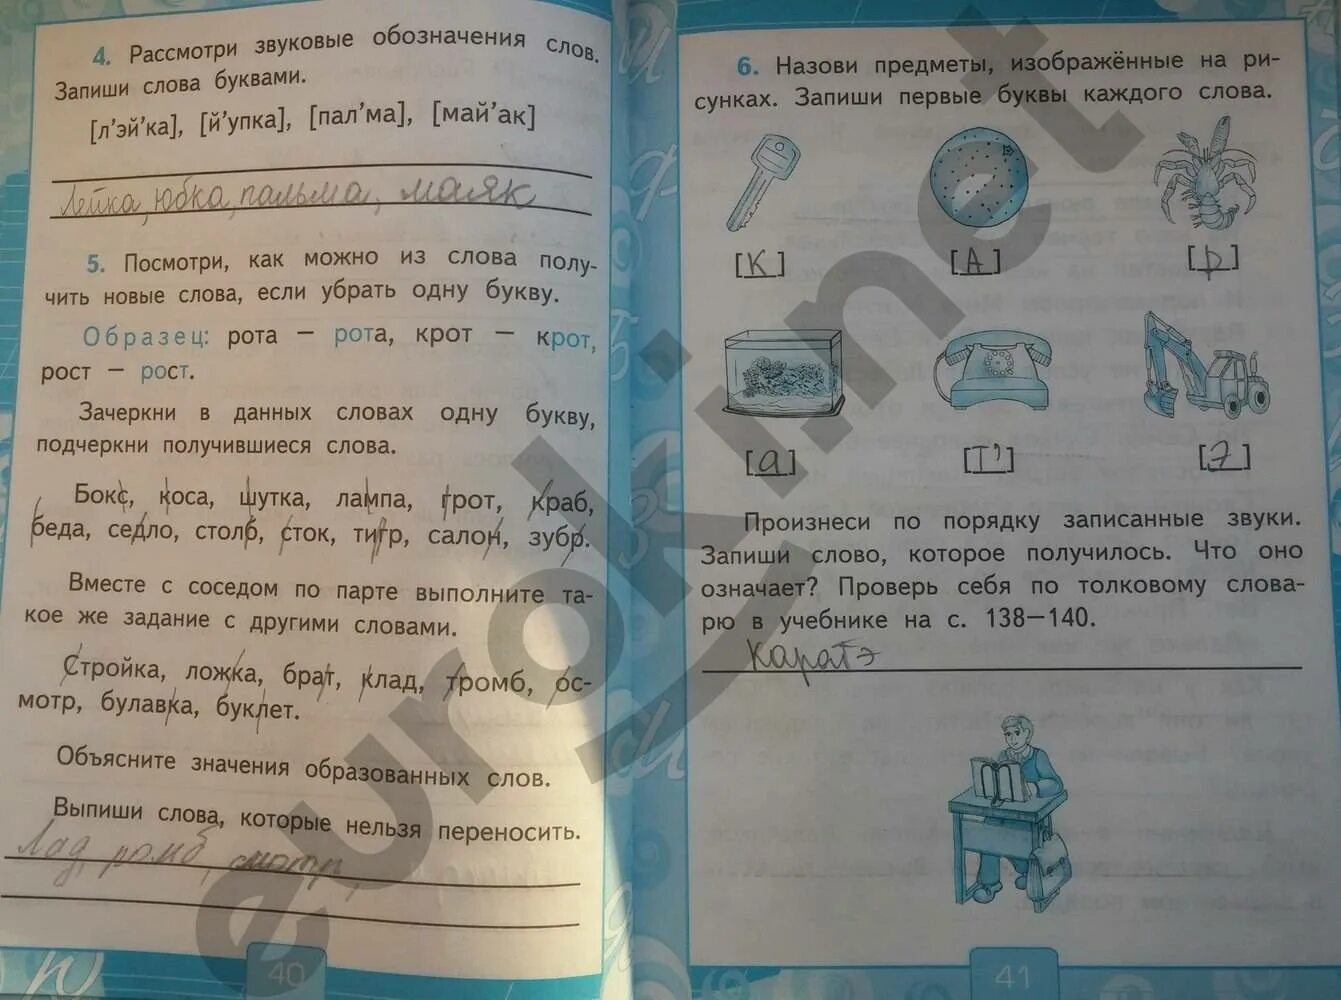 4. Рассмотри звуковые обозначения слов.
Запиши слова буквами.
[л’эй’ка], [й’упка], [пал’ма], [май’ак]
Лейка, юбка, пальма, маяк
5. Посмотри, как можно из слова полу-
чить новые слова, если убрать одну букву.
Образец: рота – рота, крот – крот,
рост – рост.
Зачеркни в данных словах одну букву,
подчеркни получившиеся слова.
Бокс, коса, шутка, лампа, грот, краб,
беда, седло, столб, сток, тигр, салон, зубр.
Вместе с соседом по парте выполните та-
кое же задание с другими словами.
Стройка, ложка, брат, клад, тромб, ос-
мотр, булавка, буклет.
Объясните значения образованных слов.
Выпиши слова, которые нельзя переносить.
Лад, ромб, смотр
40
6. Назови предметы, изображённые на ри-
сунках. Запиши первые буквы каждого слова.
[К] [А] [р]
[а] [Т’] [Э]
Произнеси по порядку записанные звуки.
Запиши слово, которое получилось. Что оно
означает? Проверь себя по толковому слова-
рю в учебнике на с. 138–140.
Каратэ
41
eurokinet